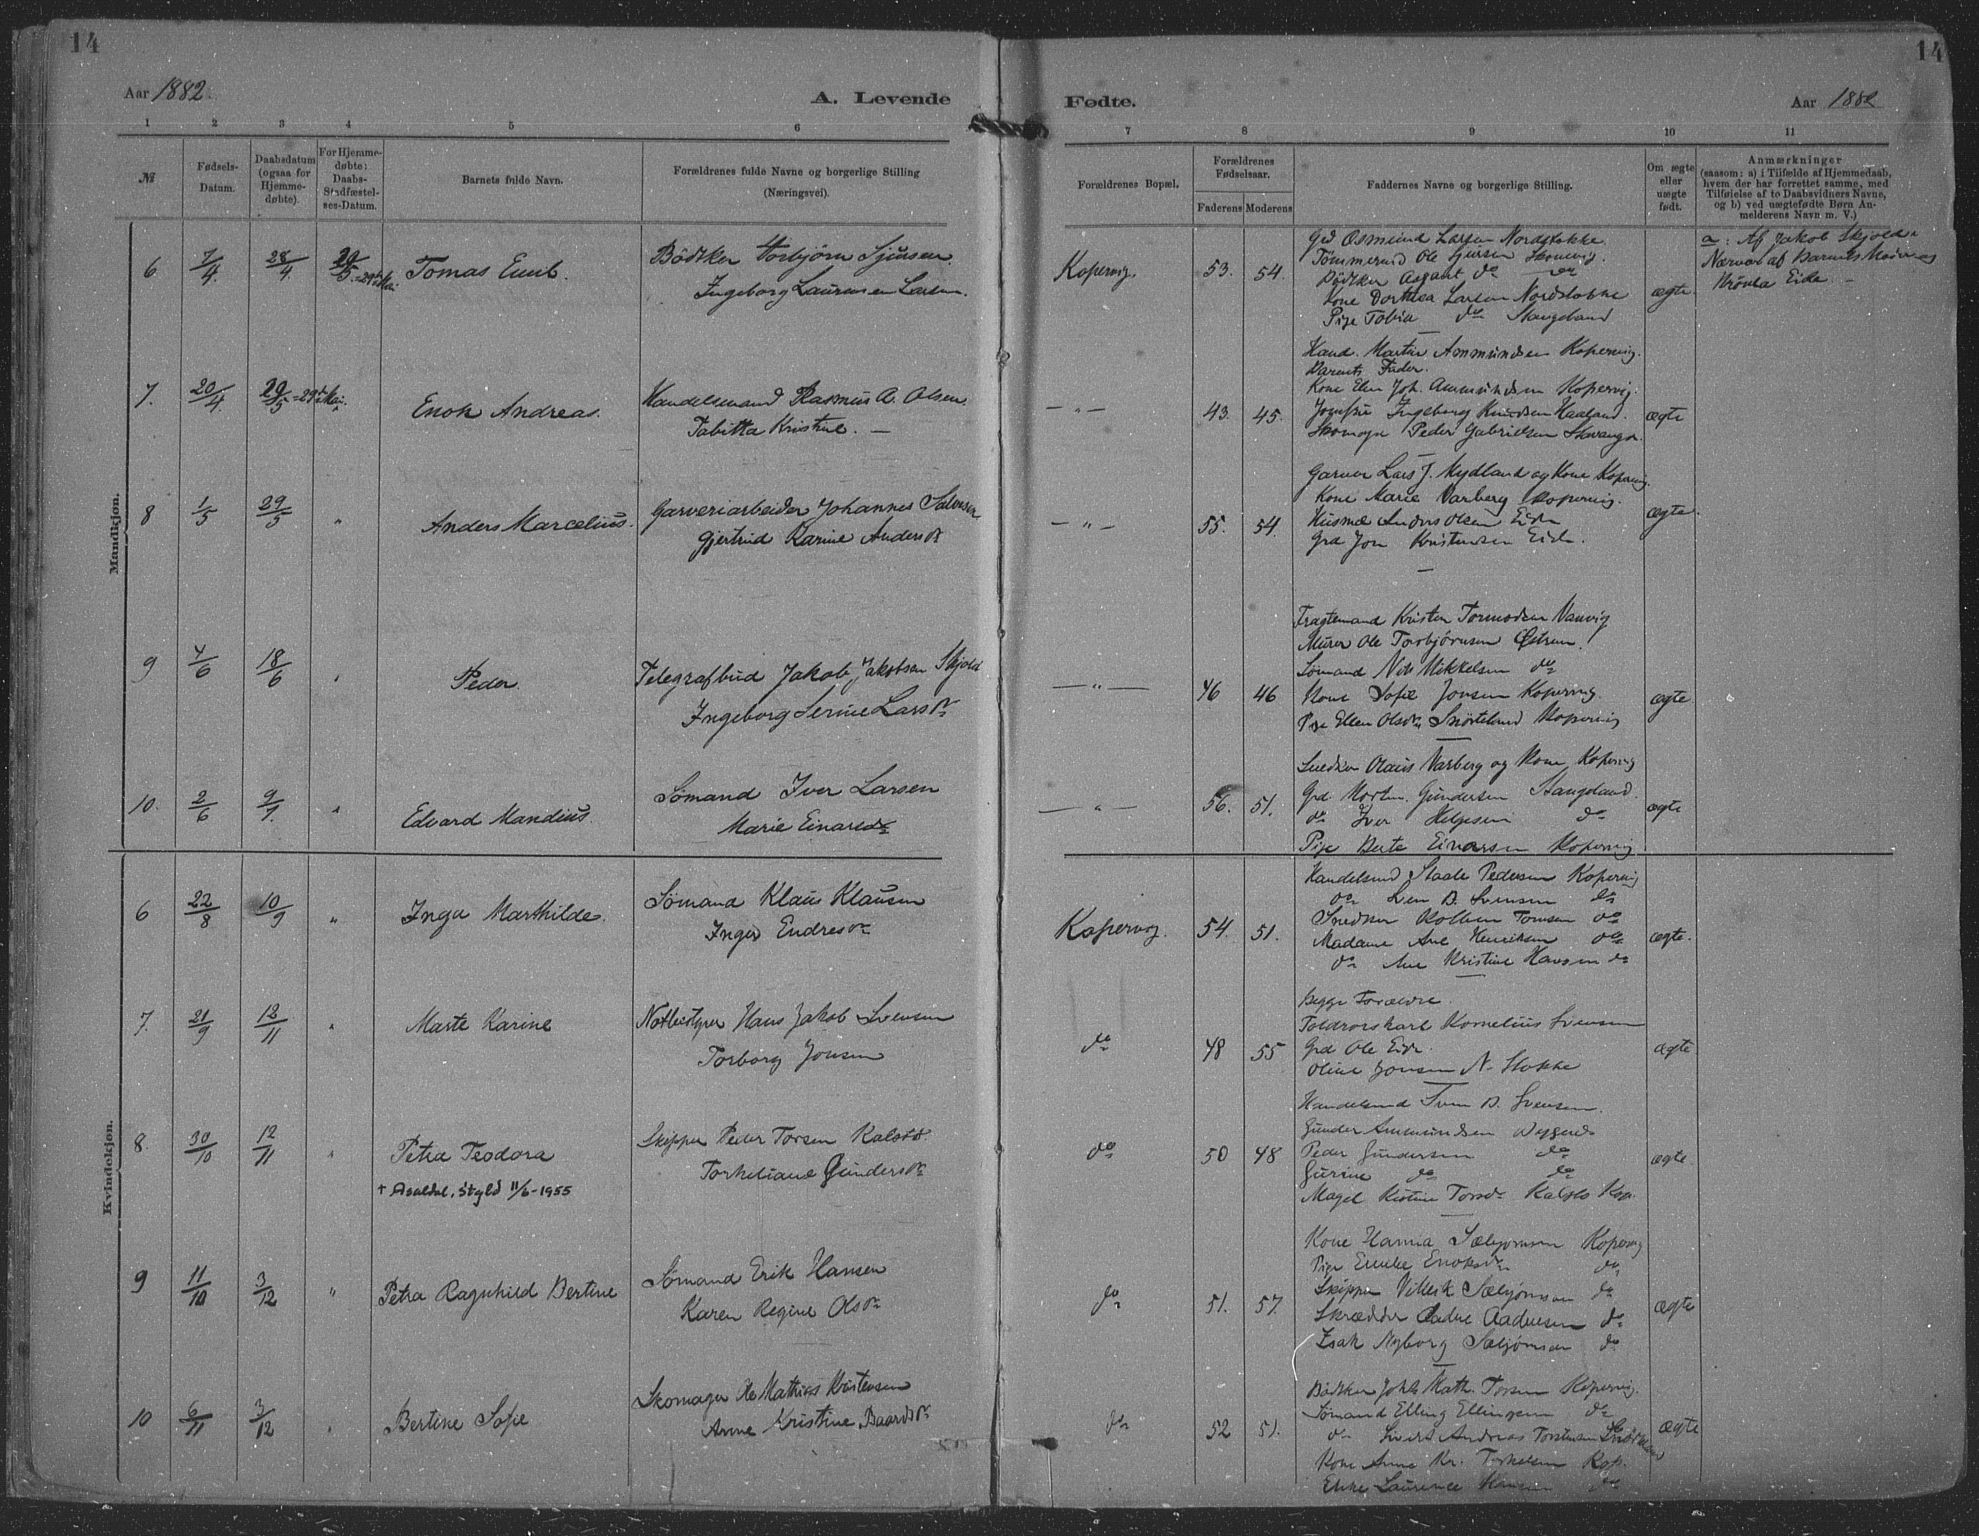 14
14
Aar 1882.
A. Levende
Fødte.
Aar 1882
1 2 3 4 5 6
7 8 9 10 11
№
Fødsels-
Datum.
Daabsdatum
(ogsaa for
Hjemme-
døbte).
For Hjemme-
døbte:
Daabs-
Stadfæstel-
ses-Datum.
Barnets fulde Navn.
Forældrenes fulde Navne og borgerlige Stilling
(Næringsvei).
Forældrenes Bopæl.
Forældrenes
Fødselsaar.
Faderens Moderens
Faddernes Navne og borgerlige Stilling.
Om ægte
eller
uægte
født.
Anmærkninger
(saasom: a) i Tilfælde af Hjemmedaab,
hvem der har forrettet samme, med
Tilføielse af to Daabsvidners Navne,
og b) ved uægtefødte Børn An-
melderens Navn m. V.)
Mandkjøn.
6 7/4 28/4 29/5 Tomas Emil.
Bödtker Torbjørn Sjursen
Ingeborg Laurense Larsen.
Kopervig. 53. 54.
Gd Osmund Larsen Nordstokke
Tømmermd Ole Sjursen Skonevig
Bödtker Asgaut do do
Kone Dorthea Larsen Nordstokke
Pige Tobia do Stangeland
ægte.
a: Af Jakob Skjold i
Nærvær af Barnets Moder og
Eide. —
7. 20/4 29/5 = 29de Mai. Enok Andreas.
Handelsmand Rasmus A. Olsen
Tabitta Kristine. —
— " — 43. 45.
Hand. Martin Ammundsen Kopervig.
Barnets Fader.
Kone Elen Joh. Ammundsen Kopervig.
Jomfru Ingeborg Knudsen Haaland.
Skomager Peder Gabrielsen Stavanger.
ægte
8 1/5 29/5 " Anders Marcelius.
Garveriarbeider Johannes Salvesen
Gjertrud Karine Andersdr
— " — 55. 54.
Garver Lars J. Mydland og Kone Kopervig.
Kone Marie Varberg Kopervig.
Husmd Anders Olsen Eide
Grd Jon Kristensen Eide.
ægte.
9 4/6 18/6 " Peder.
Telegrafbud Jakob Jakobsen Skjold
Ingeborg Serine Larsdr
— " — 46 46
Fragtemand Kristen Tormodsen Vanvig
Murer Ole Torbjørnsen Østrem.
Sømand Nils Mikkelsen do
Kone Sofie Jonsen Kopervig.
Pige Ellen Olsdr Kopervig
ægte.
10. 2/6 9/7. " Edvard Mandius.
Sømand Iver Larsen
Marie Einarsdr
— " — 56. 51.
Snedker Olaus Varberg og Kone, Kopervig
Grd Morten Gundersen Stangeland.
do Iver Helgesen do
Pige Berte Einarsen Kopervig
ægte
Kvindekjøn.
6 22/8 10/9 " Inga Marthilde.
Sømand Klaus Klausen
Inger Endresdr
Kopervig. 54. 51.
Handelsmd Staale Pedersen Kopervig
do Sven B. Svensen do
Snedker Kolben Tomsen do
Madame Ane Henriksen do
do Ane Kristine Hansen do
ægte.
7. 21/9 12/11 " Marte Karine
Hans Jakob Svensen
Torborg Jonsen
do 48 55
Begge Forældre.
Toldroerskarl Kornelius Svensen
Grd Ole Eide.
Oline Jonsen N. Stokke
ægte
8. 30/10 12/11 " Petra Teodora
† Asaldal, Skyld 11/6-1955
Skipper Peder Torsen Kalstø.
Torkeliane Gundersdr
do 50 48
Handelsmd Sven B. Svensen.
Gunder Ammundsen
Peder Gundersen do
Gurine do do
Magel Kristine Torsdr Kalstø Kop.
ægte
9 11/10 3/12 " Petra Ragnhild Bertine
Sømand Erik Hansen
Karen Regine Olsdr
do 51. 57.
Kone Hanna Sæbjørnsen Kopervig
Pige Emilie Enoksdr do
Skipper Sæbjørnsen do
Skrædder Aadne Aadnesen do
Isak Nyborg Sæbjørnsen do
ægte
10 6/11 3/12 " Bertine Sofie
Skomager Ole Mathias Kristensen
Anne Kristine Baardsdr
do 52 51.
Bödtker Johs Math. Torsen Kopervig.
Sømand Elling Ellingsen do
do Sivert Andreas Torstensen
Kone Anne Kr. Torkelsen Kop.
Enke Laurence Hansen do
ægte